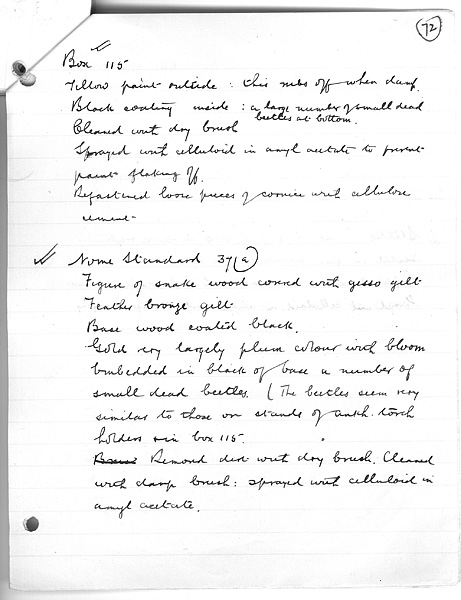 72
Box 115
Yellow paint outside: this rubs off when damp.
Black coating inside: a large number of small dead
beetles at bottom.
Cleaned with dry brush
Sprayed with celluloid in amyl acetate to prevent
paint flaking off.
Refastened loose pieces of cornice with cellulose
cement
Nome Standard 37(a)
Figure of snake wood covered with gesso gilt
Feather bronze gilt
Base wood coated black.
Gold very largely plum colour with bloom
Embedded in black of base a number of
small dead beetles. (The beetles seem very
similar to those on stands of ankh torch
holders & in box 115.
Removed dirt with dry brush. Cleaned
with damp brush: sprayed with celluloid in
amyl acetate.